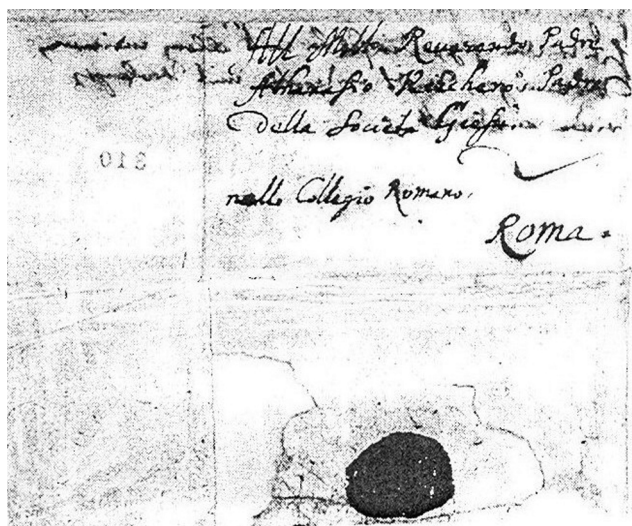 All Molto Reverendo Padre
Athanasio Kircherò Padre
della Societa Giesu
nello Collegio Romano.
Roma.
310